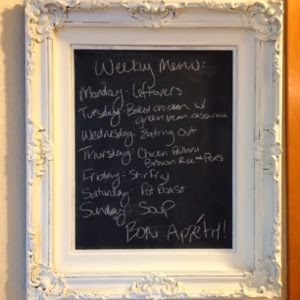 Weekly Menu:
Monday- Leftovers
Tuesday- Baked chicken w/
green bean casserole
Wednesday- Eating Out
Thursday-
Brown Rice + Peas
Friday- Stir Fry
Saturday- Pot Roast
Sunday- Soup
Bon Appétit!